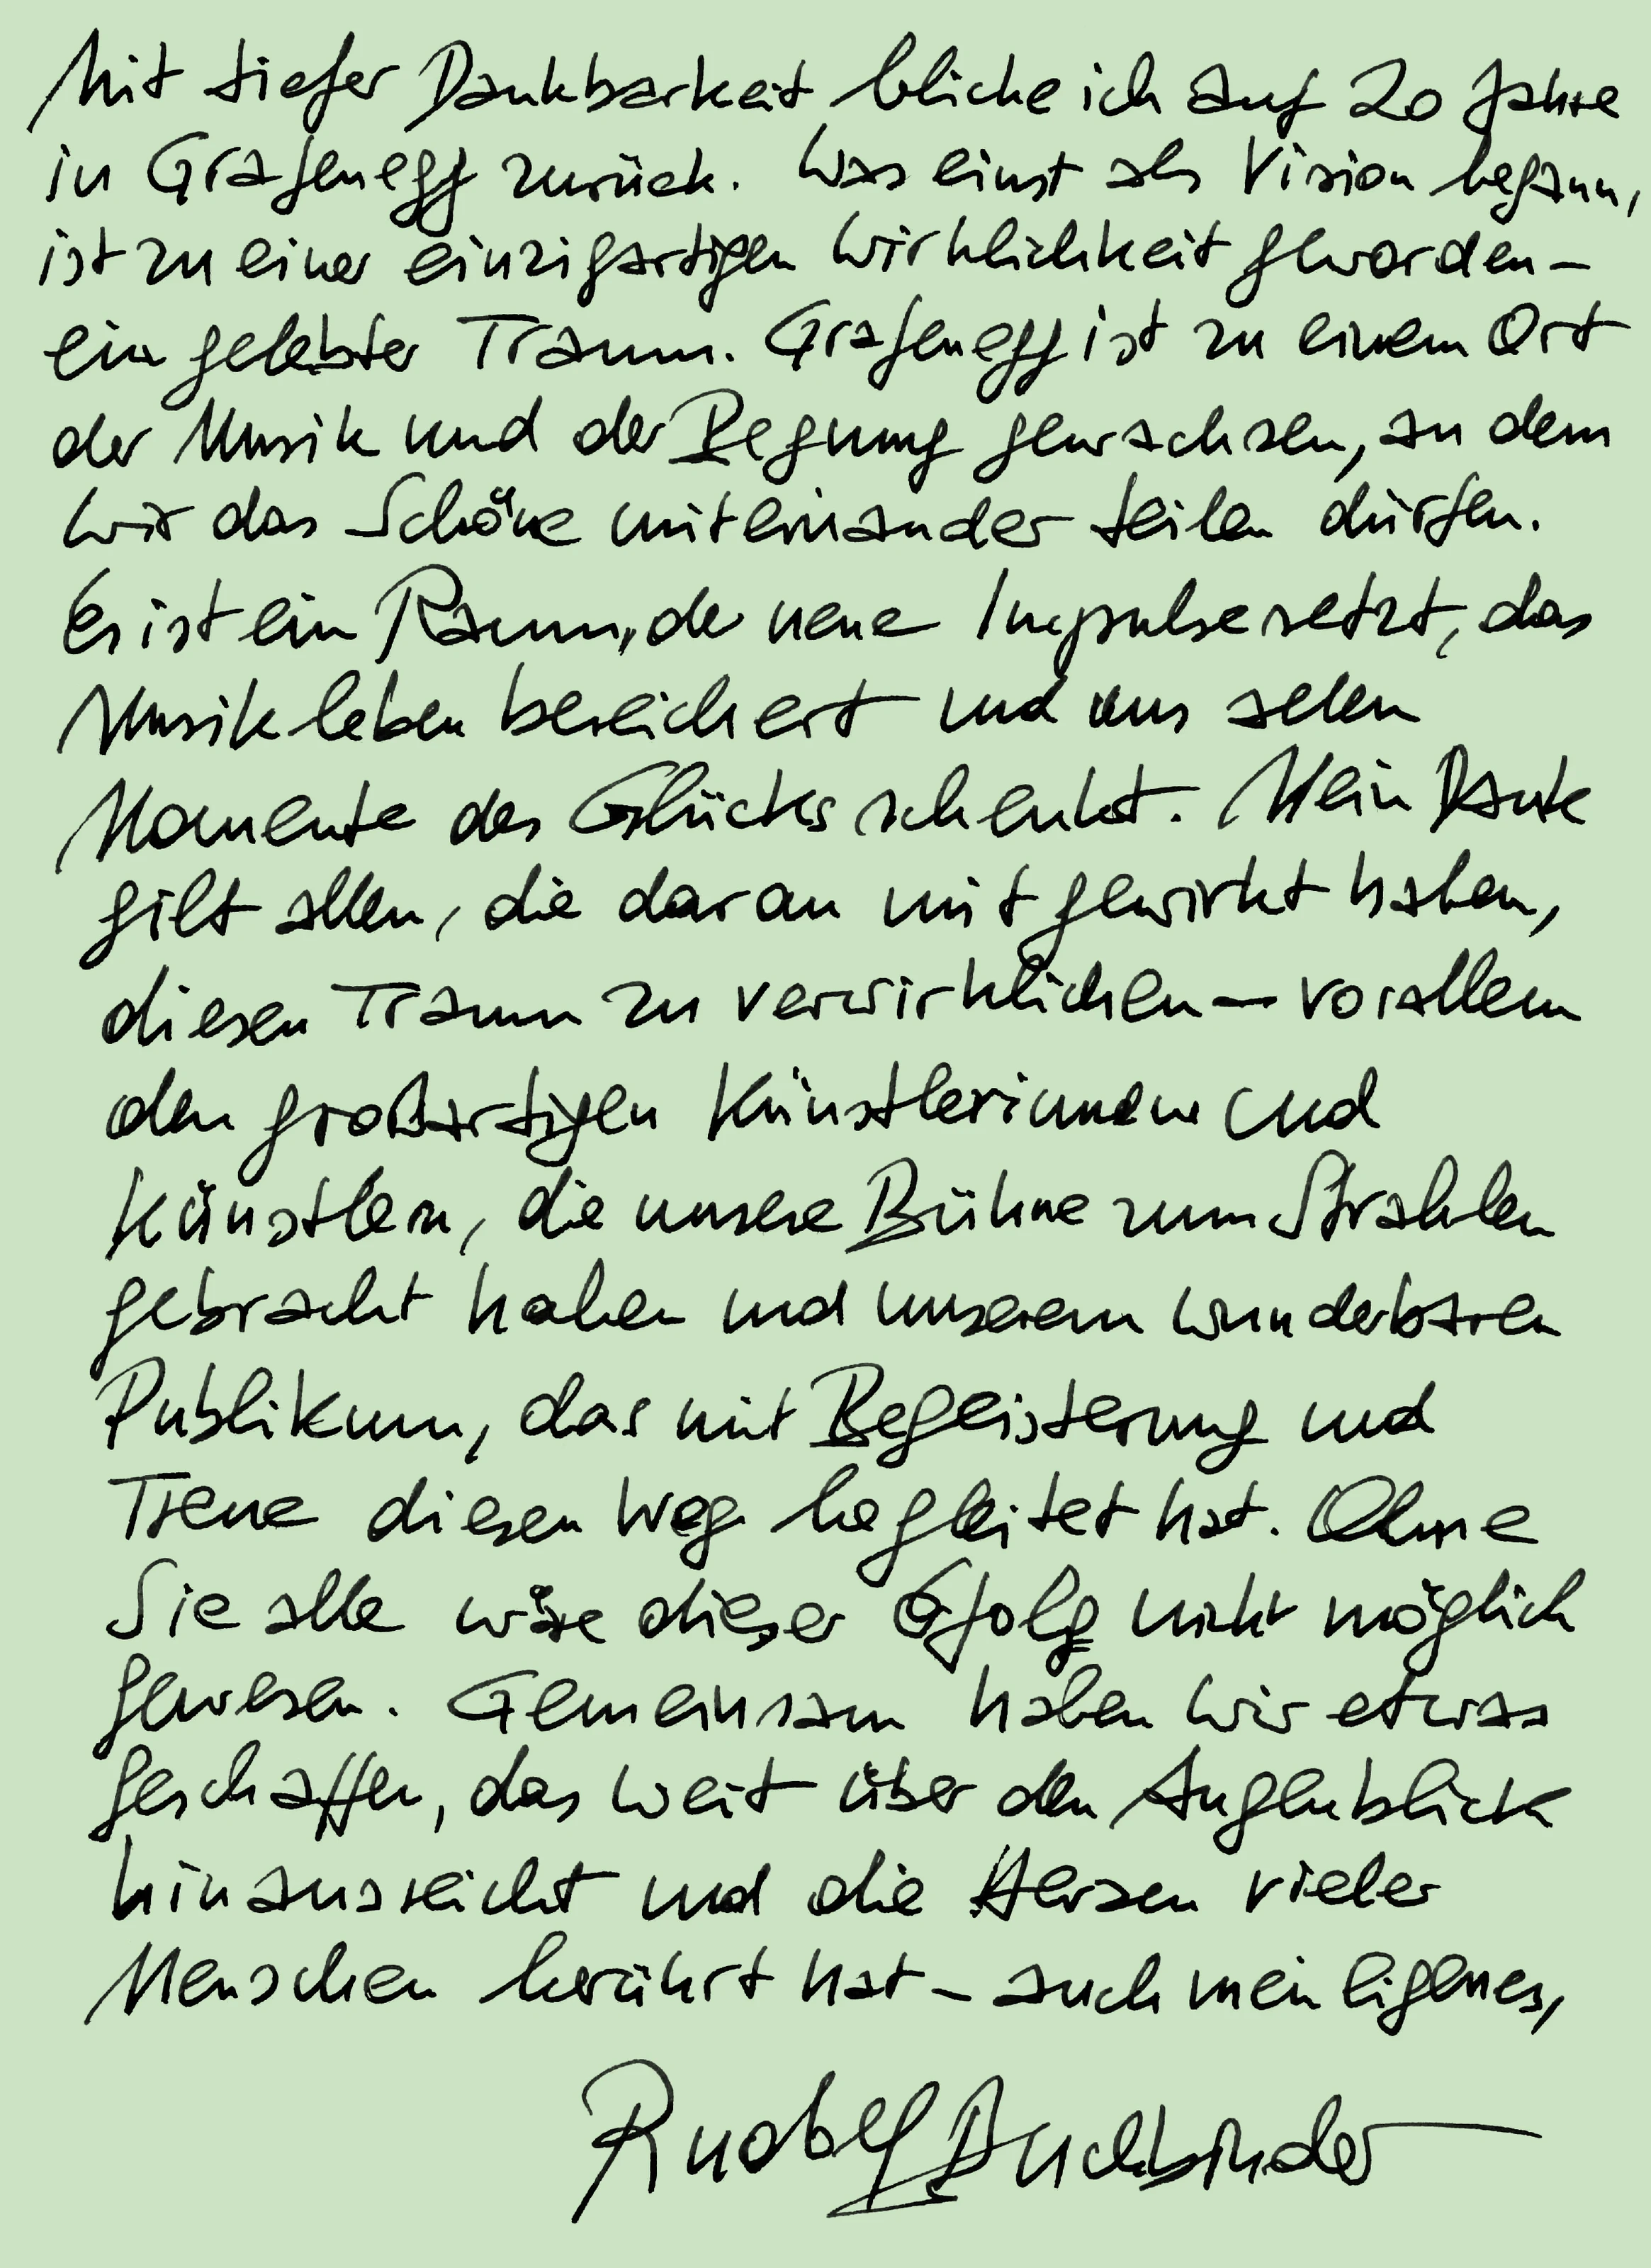 Mit tiefer Dankbarkeit blicke ich auf 20 Jahre
in Grafenegg zurück. Was einst als Vision begann,
ist zu einer einzigartigen Wirklichkeit geworden –
ein gelebter Traum. Grafenegg ist zu einem Ort
der Musik und der Begnung gewachsen, an dem
wir das Schöne miteinander teilen dürfen.
Es ist ein Raum, der neue Impulse setzt, das
Musikleben bereichert und uns allen
Momente des Glücks schenkt. Mein Dank
gilt allen, die daran mitgewirkt haben,
diesen Traum zu verwirklichen – vor allem
den großartigen Künstlerinnen und
Künstlern, die unsere Bühne zum Strahlen
gebracht haben und unserem wunderbaren
Publikum, das mit Begeisterung und
Treue diesen Weg begleitet hat. Ohne
Sie alle wäre dieser Erfolg nicht möglich
gewesen. Gemeinsam haben wir etwas
geschaffen, das weit über den Augenblick
hinausreicht und die Herzen vieler
Menschen berührt hat – auch mein eigenes,
Rudolf Buchbinder